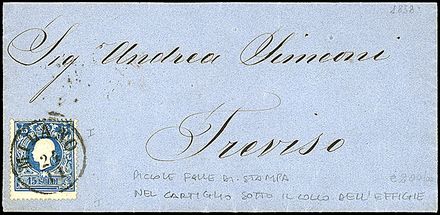 1858.
Sig. Andrea Simeoni
Treviso
I
MILANO
15 SOLDI
PICCOLE FALLE DI STAMPA
NEL CARTIGLIO SOTTO IL COLLO DELL'EFFIGIE